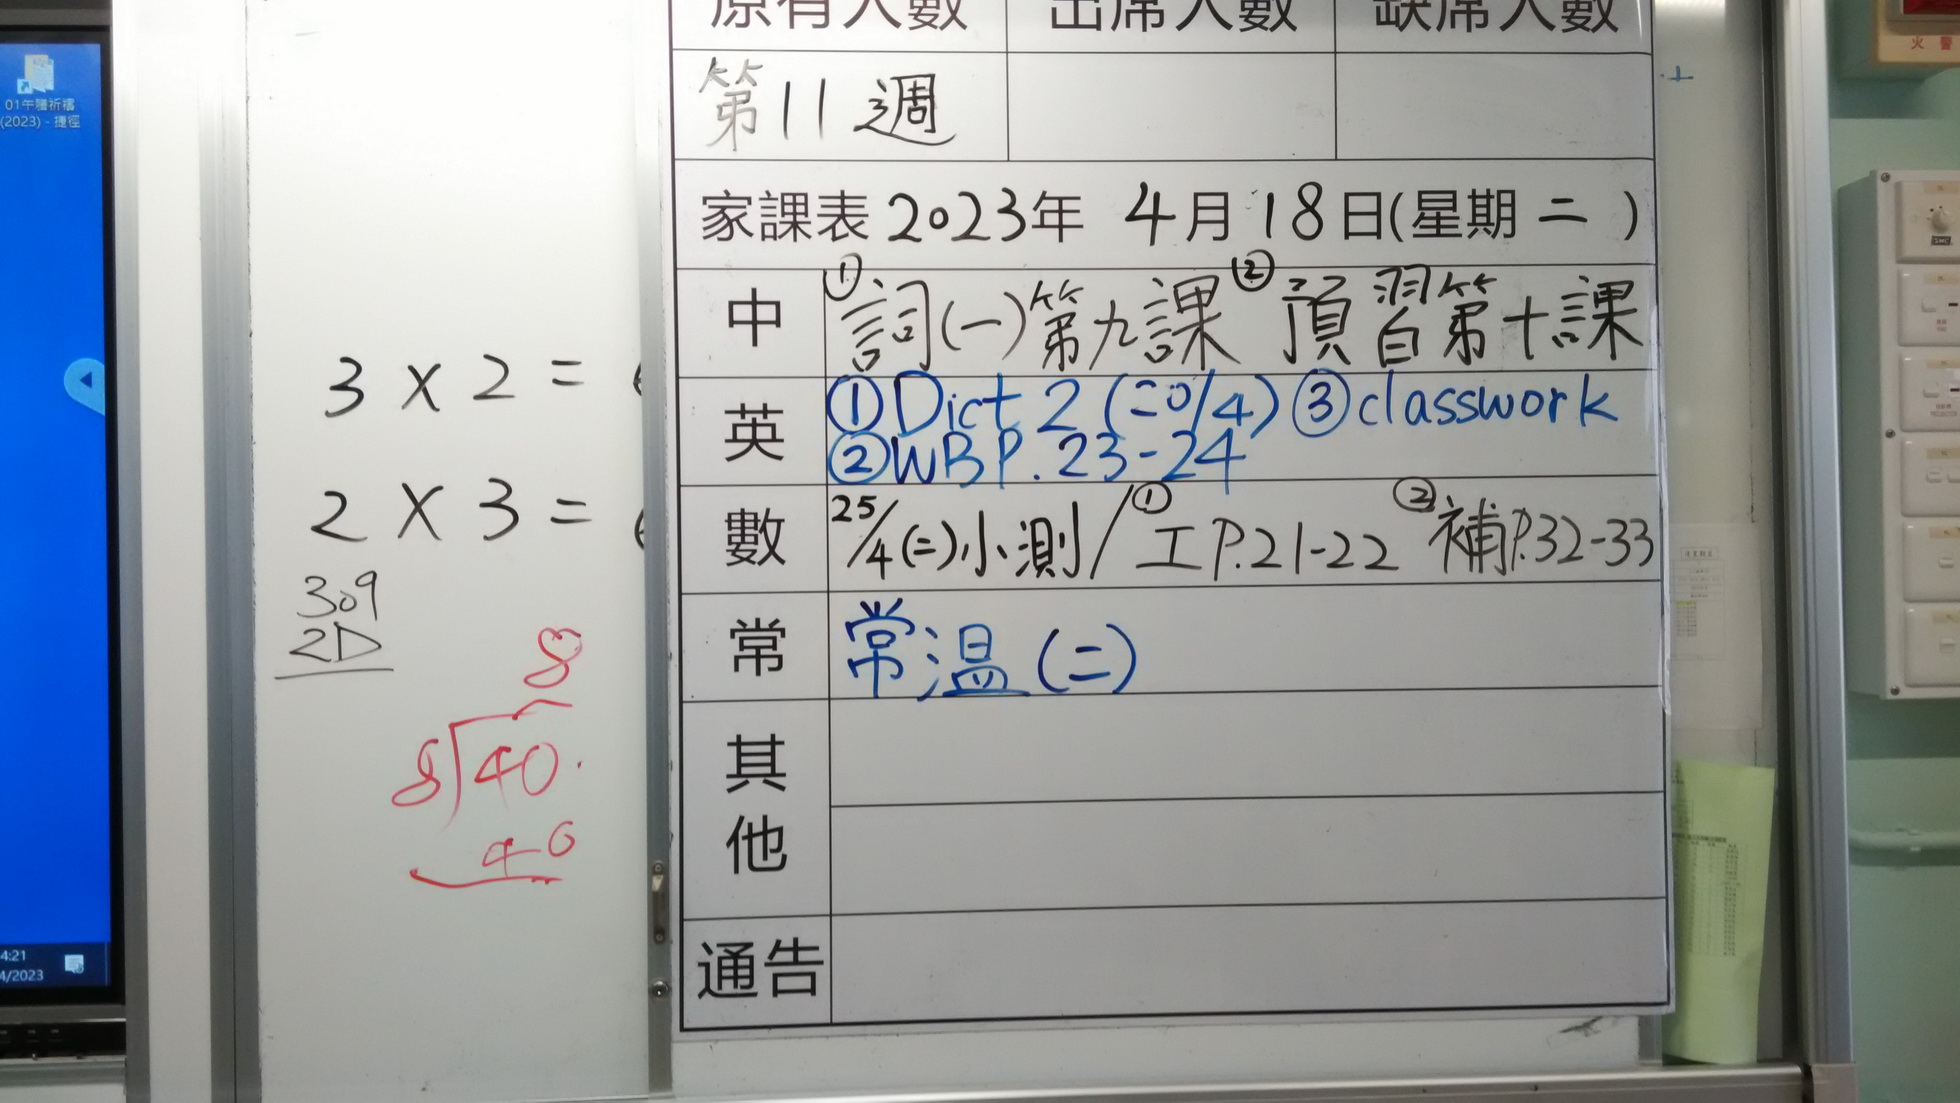 01午膳祈禱
(2023) - 捷徑
4:21
4/2023
3 x 2 =
2 x 3 =
309
2D
8
8 40.
40
原有人數 出席人數 缺席人數
第11週
家課表 2023年 4月 18日(星期 二 )
中 ①詞(一)第九課 ②預習第十課
英 ①Dict 2 (20/4) ③classwork
②WB P.23-24
數 25/4(二)小測/ ①工P.21-22 ②補P.32-33
常 常溫(二)
其他
通告
火 警